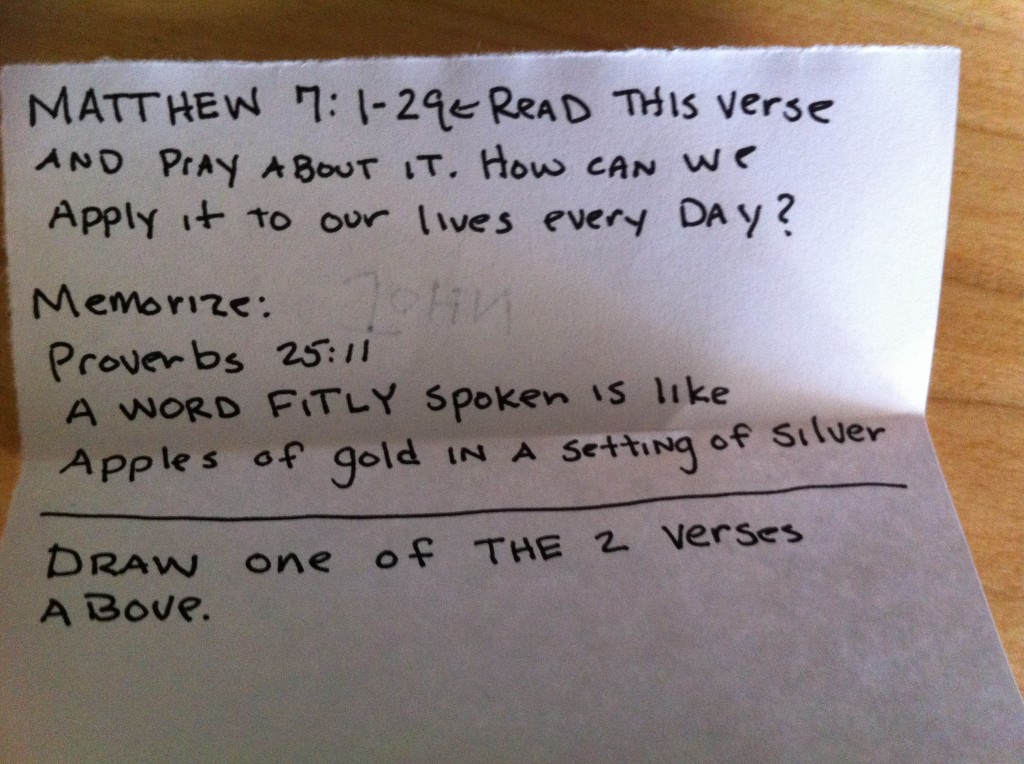 MATTHEW 7:1-29← READ THIS verse
AND PrAY ABOUT IT. How CAN we
Apply it to our lives every DAY?
JOHN
Memorize:
Proverbs 25:11
A WORD FITLY Spoken IS like
Apples of gold IN A setting of Silver
DRAW one of THE 2 verses
ABove.